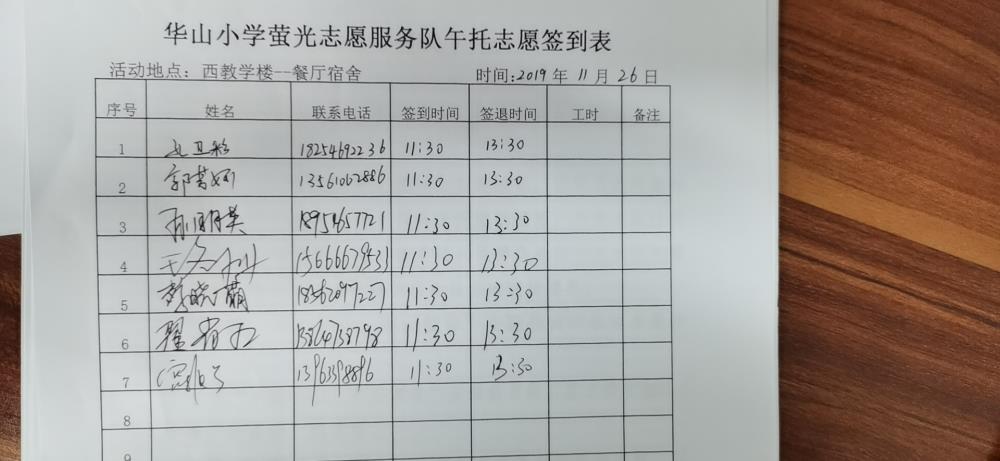 华山小学萤光志愿服务队午托志愿签到表
活动地点：西教学楼--餐厅宿舍 时间:2019 年 11 月 26 日
序号 姓名 联系电话 签到时间 签退时间 工时 备注
1 18254692236 11:30 13:30
2 13561062886 11:30 13:30
3 孙明英 18954657721 11:30 13:30
4 15666679533 11:30 13:30
5 彭晓萌 18362097227 11:30 13:30
6 11:30 13:30
7 11:30 13:30
8
9